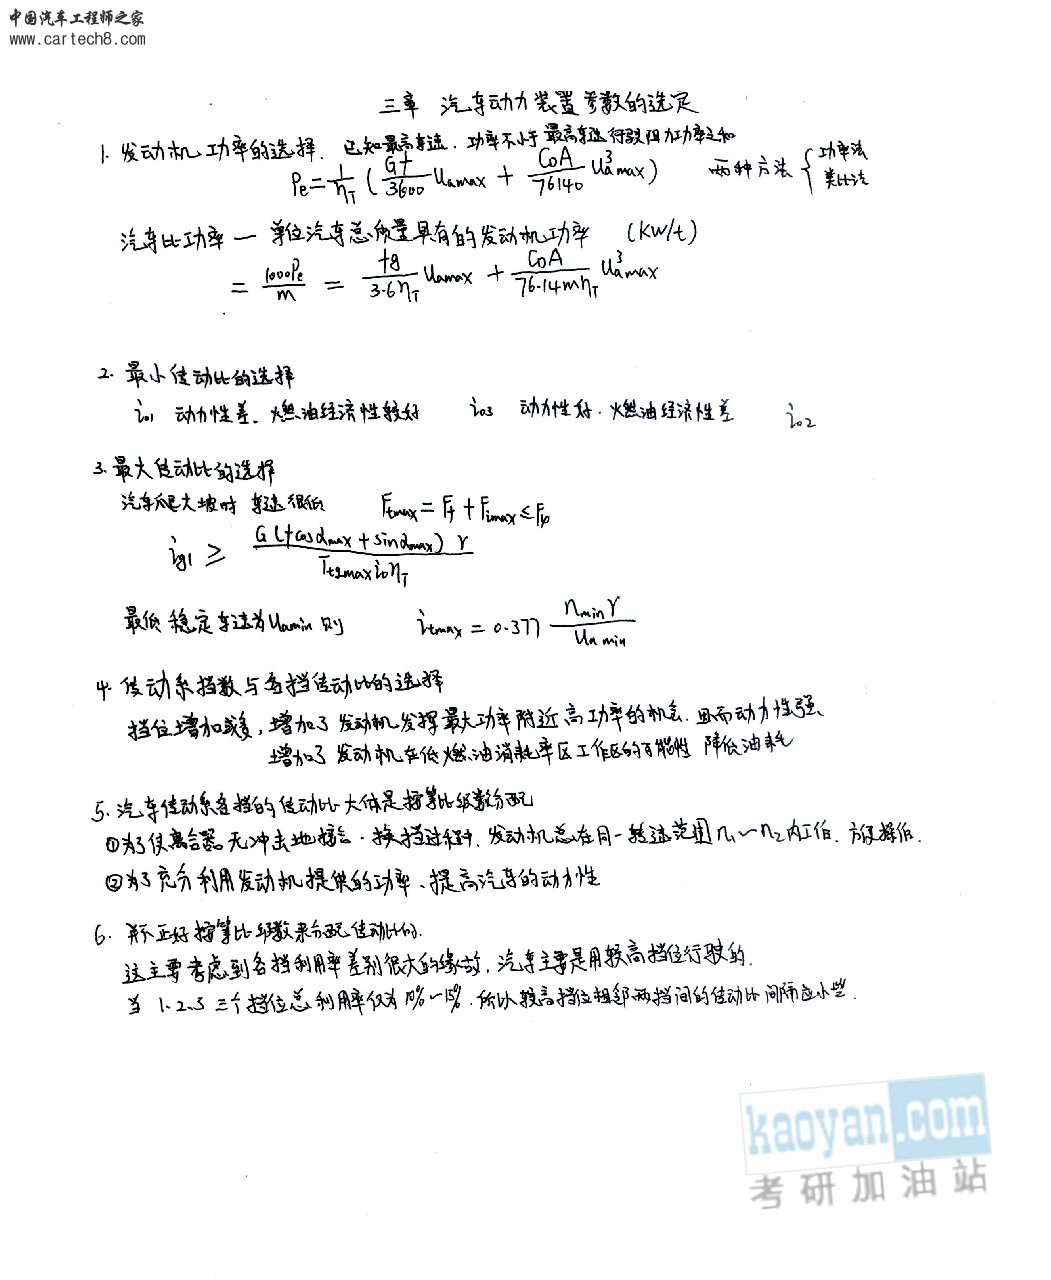 中国汽车工程师之家
www.cartech8.com
三章 汽车动力装置参数的选定
1. 发动机功率的选择. 已知最高车速. 功率不小于最高车速行驶阻力功率之和
Pe = 1/ηT (Gf/3600 Uamax + CDA/76140 U³amax) 两种方法 { 功率法 类比法
汽车比功率 — 单位汽车总质量具有的发动机功率 (KW/t)
= 1000Pe/m = fg/3.6ηT Uamax + CDA/76.14mηT U³amax
2. 最小传动比的选择
i01 动力性差. 燃油经济性较好 i03 动力性好. 燃油经济性差 i02
3. 最大传动比的选择
汽车爬大坡时 车速很低 Ftmax = Ff + Fimax ≤ Fφ
ig1 ≥ G(fcosαmax + sinαmax) r / Ttqmax i0 ηT
最低稳定车速为Uamin 则 itmax = 0.377 nmin r / Uamin
4. 传动系挡数与各挡传动比的选择
挡位增加或多, 增加了发动机发挥最大功率附近高功率的机会. 且而动力性强、
增加了发动机在低燃油消耗率区工作区的可能性 降低油耗
5. 汽车传动系各挡的传动比大体是按等比级数分配
①为了使离合器无冲击地接合. 换挡过程中, 发动机总在同一转速范围n1~n2内工作. 方便操作.
②为了充分利用发动机提供的功率、提高汽车的动力性
6. 并不正好按等比级数来分配传动比的.
这主要考虑到各挡利用率差别很大的缘故, 汽车主要是用较高挡位行驶的.
1.2.3 三个挡位总利用率仅为10%~15%. 所以较高挡位相邻两挡间的传动比间隔应小些.
kaoyan.com
考研加油站